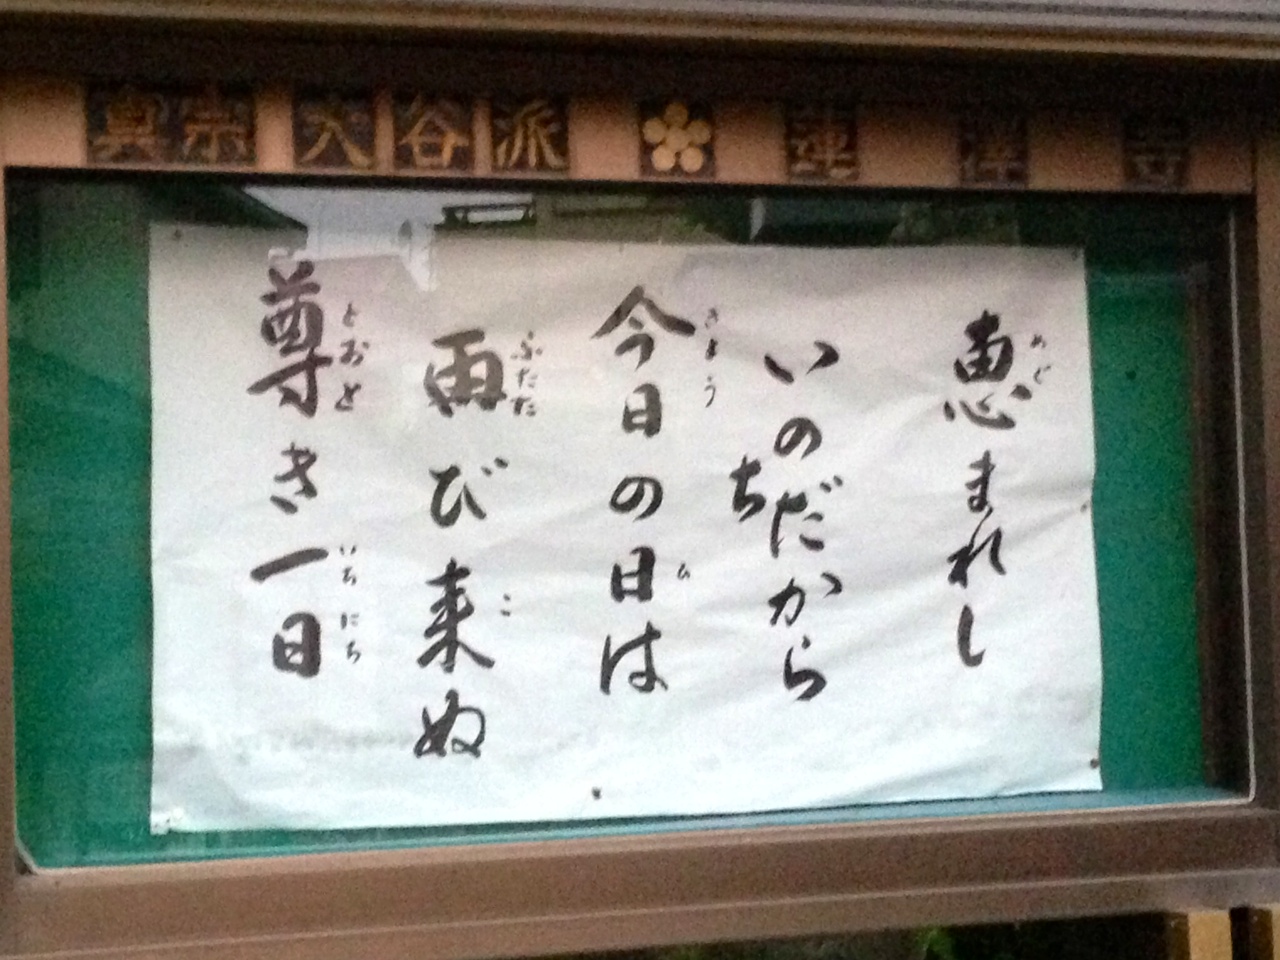 真宗大谷派 蓮澤寺
恵まれし
めぐ
いのちだから
今日の日は
きょう ひ
再び来ぬ
ふたた こ
尊き一日
とおと いちにち